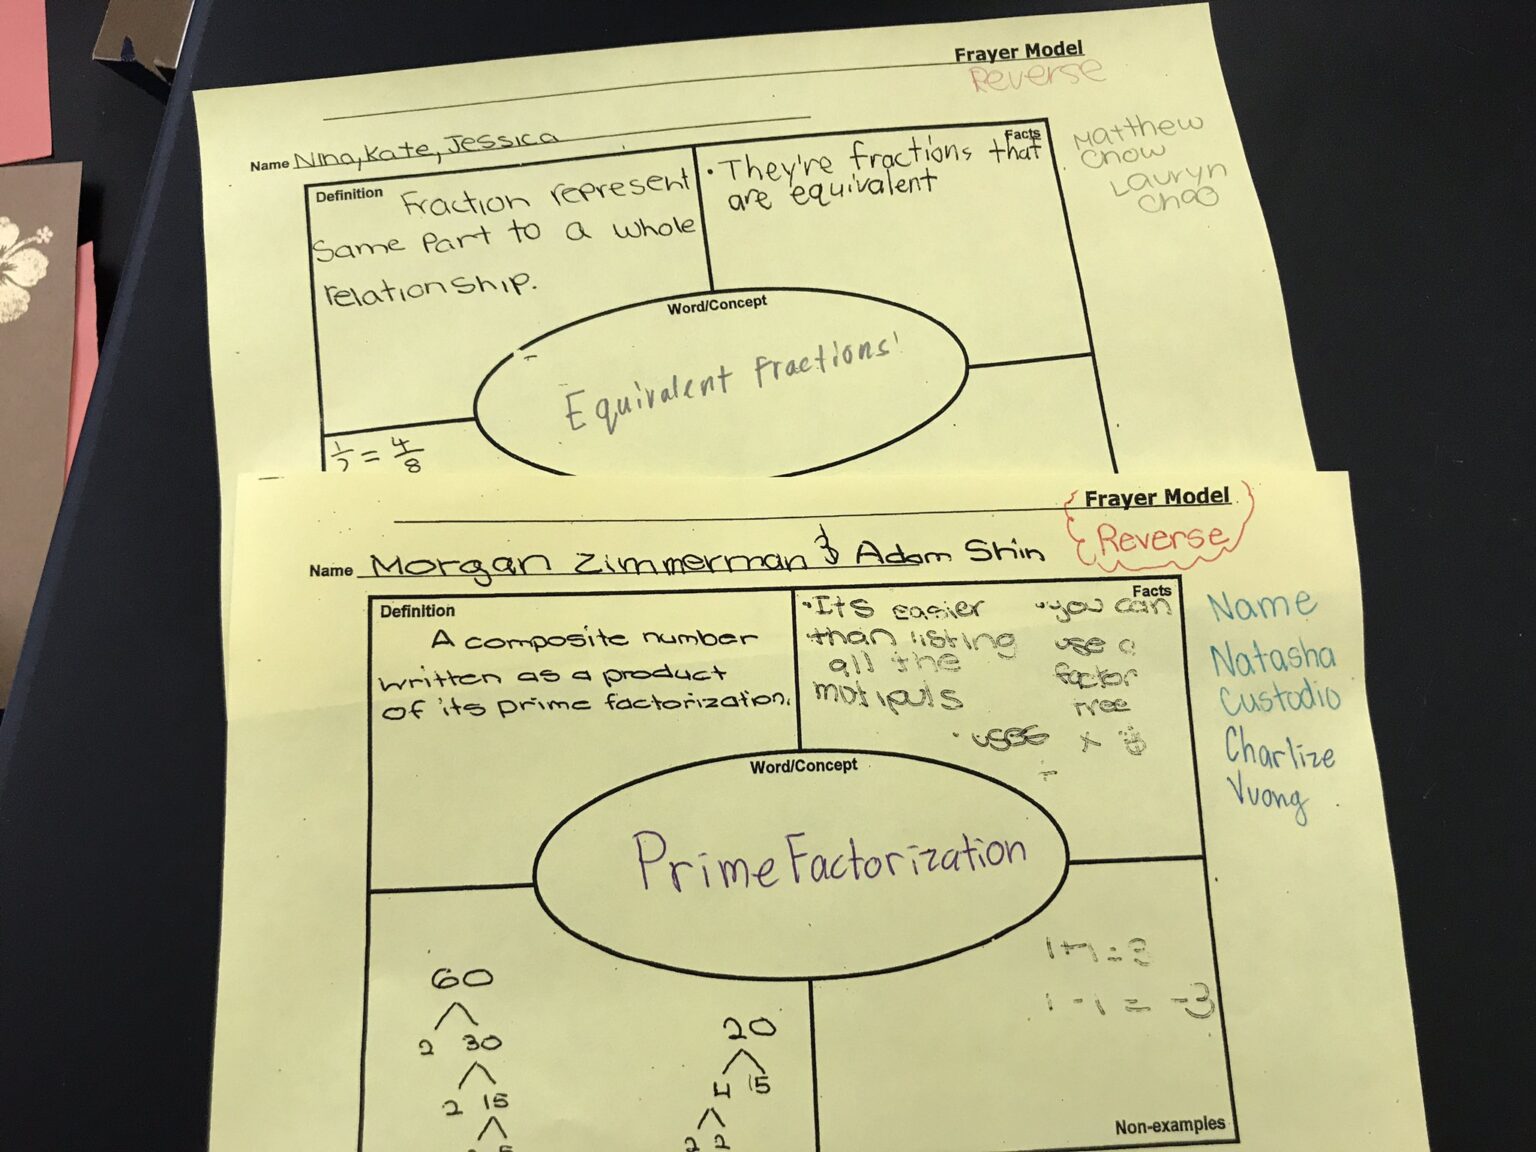 Frayer Model
Reverse
Name Nina, Kate, Jessica
Matthew
Chow
Lauryn
Chao
Definition
Fraction represent
same part to a whole
relationship.
Facts
• They're fractions that
are equivalent
Word/Concept
Equivalent Fractions
1/2 = 4/8
Frayer Model
Reverse
Name Morgan Zimmerman & Adam Shin
Name
Natasha
Custodio
Charlize
Vuong
Definition
A composite number
written as a product
of its prime factorization.
Facts
• Its easier
than listing
all the
motipuls
• you can
use a
factor
tree
• uses × &
÷
Word/Concept
Prime Factorization
60
2 30
2 15
5
20
4 15
2 2
1+1=3
1-1=-3
Non-examples